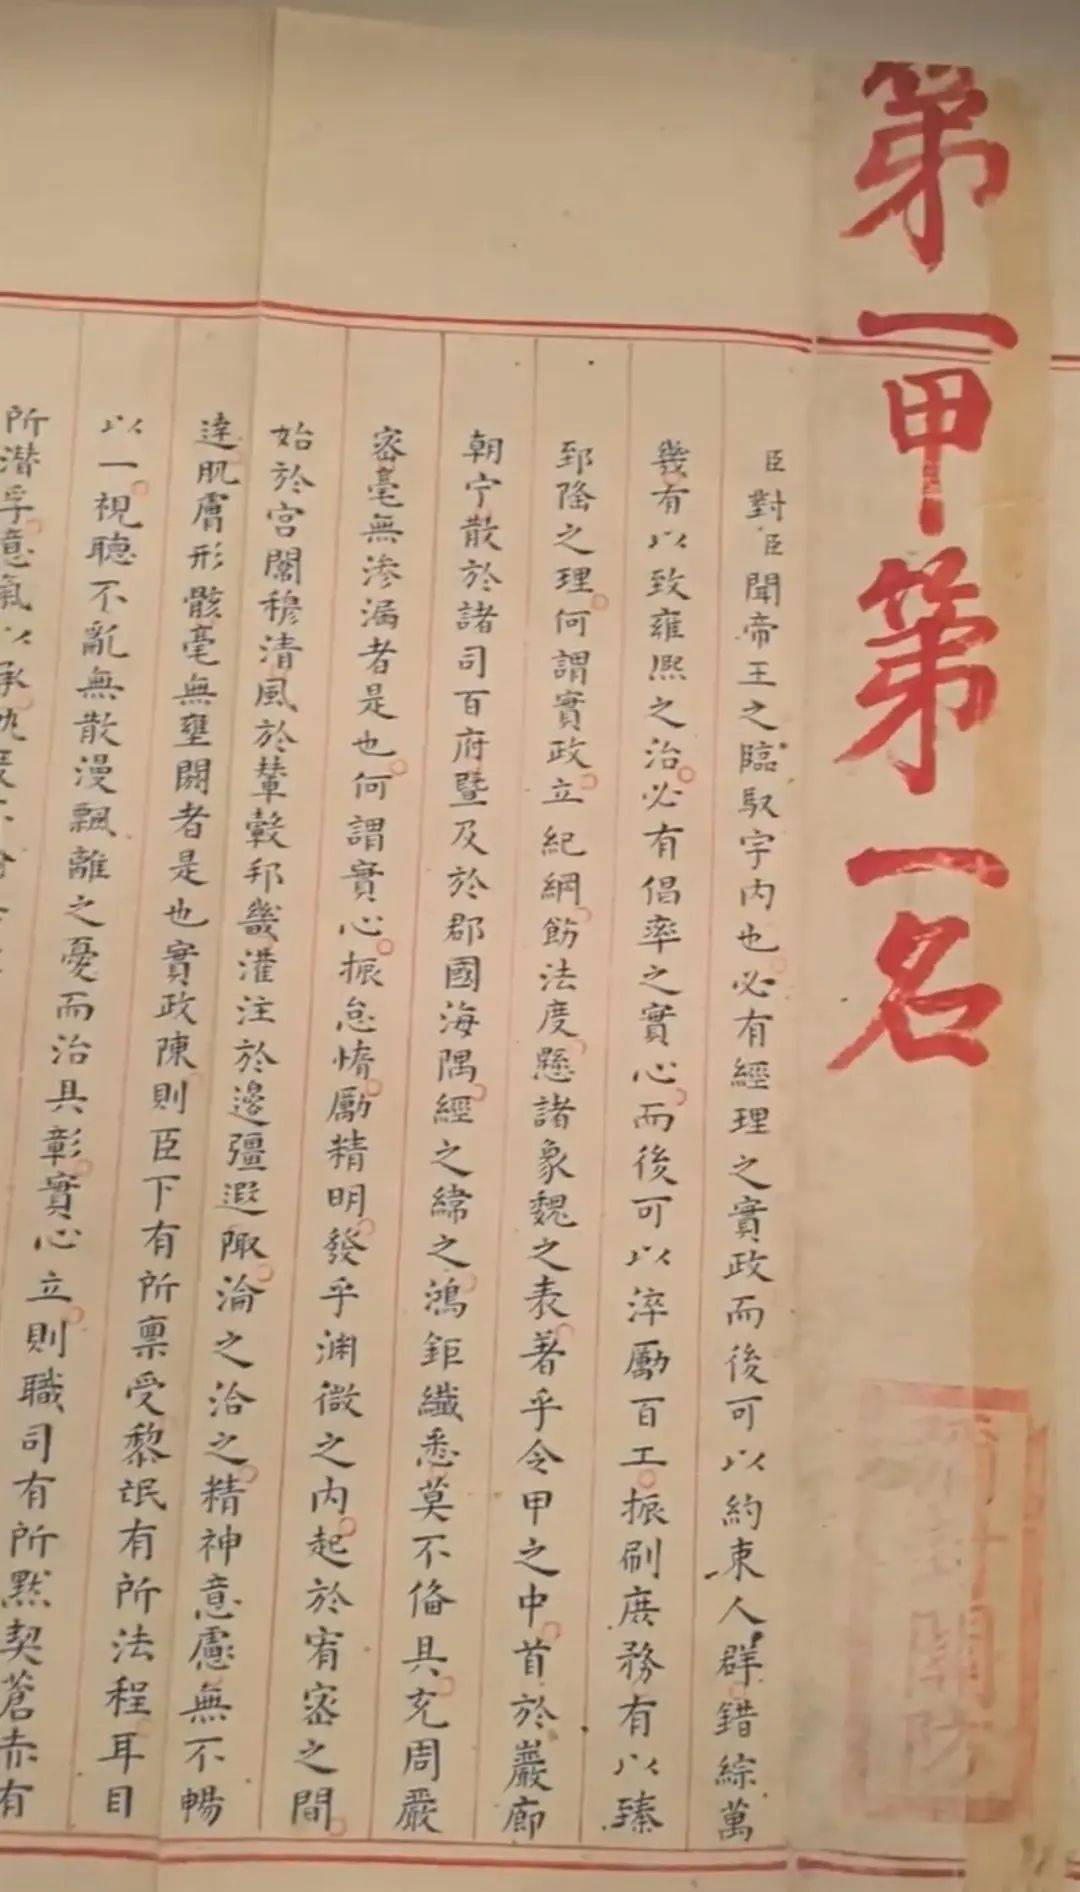 第一甲第一名
臣對臣聞帝王之臨馭宇內也必有經理之實政而後可以約束人群錯綜萬
幾有以致雍熙之治必有倡率之實心而後可以淬勵百工振刷庶務有以臻
郅隆之理何謂實政立紀綱飭法度懸諸象魏之表著乎令甲之中首於巖廊
朝宁散於諸司百府暨及於郡國海隅經之緯之鴻鉅纖悉莫不俻具充周嚴
密毫無渗漏者是也何謂實心振怠惰勵精明發乎渊微之內起於宥密之間
始於宮闈穆清風於輦轂邦畿灌注於邊疆遐陬淪之洽之精神意慮無不暢
達肌膚形骸毫無壅閼者是也實政陳則臣下有所禀受黎氓有所法程耳目
以一視聽不亂無散漫飄離之憂而治具彰實心立則職司有所默契蒼赤有
所潛孚意氣以承
關防